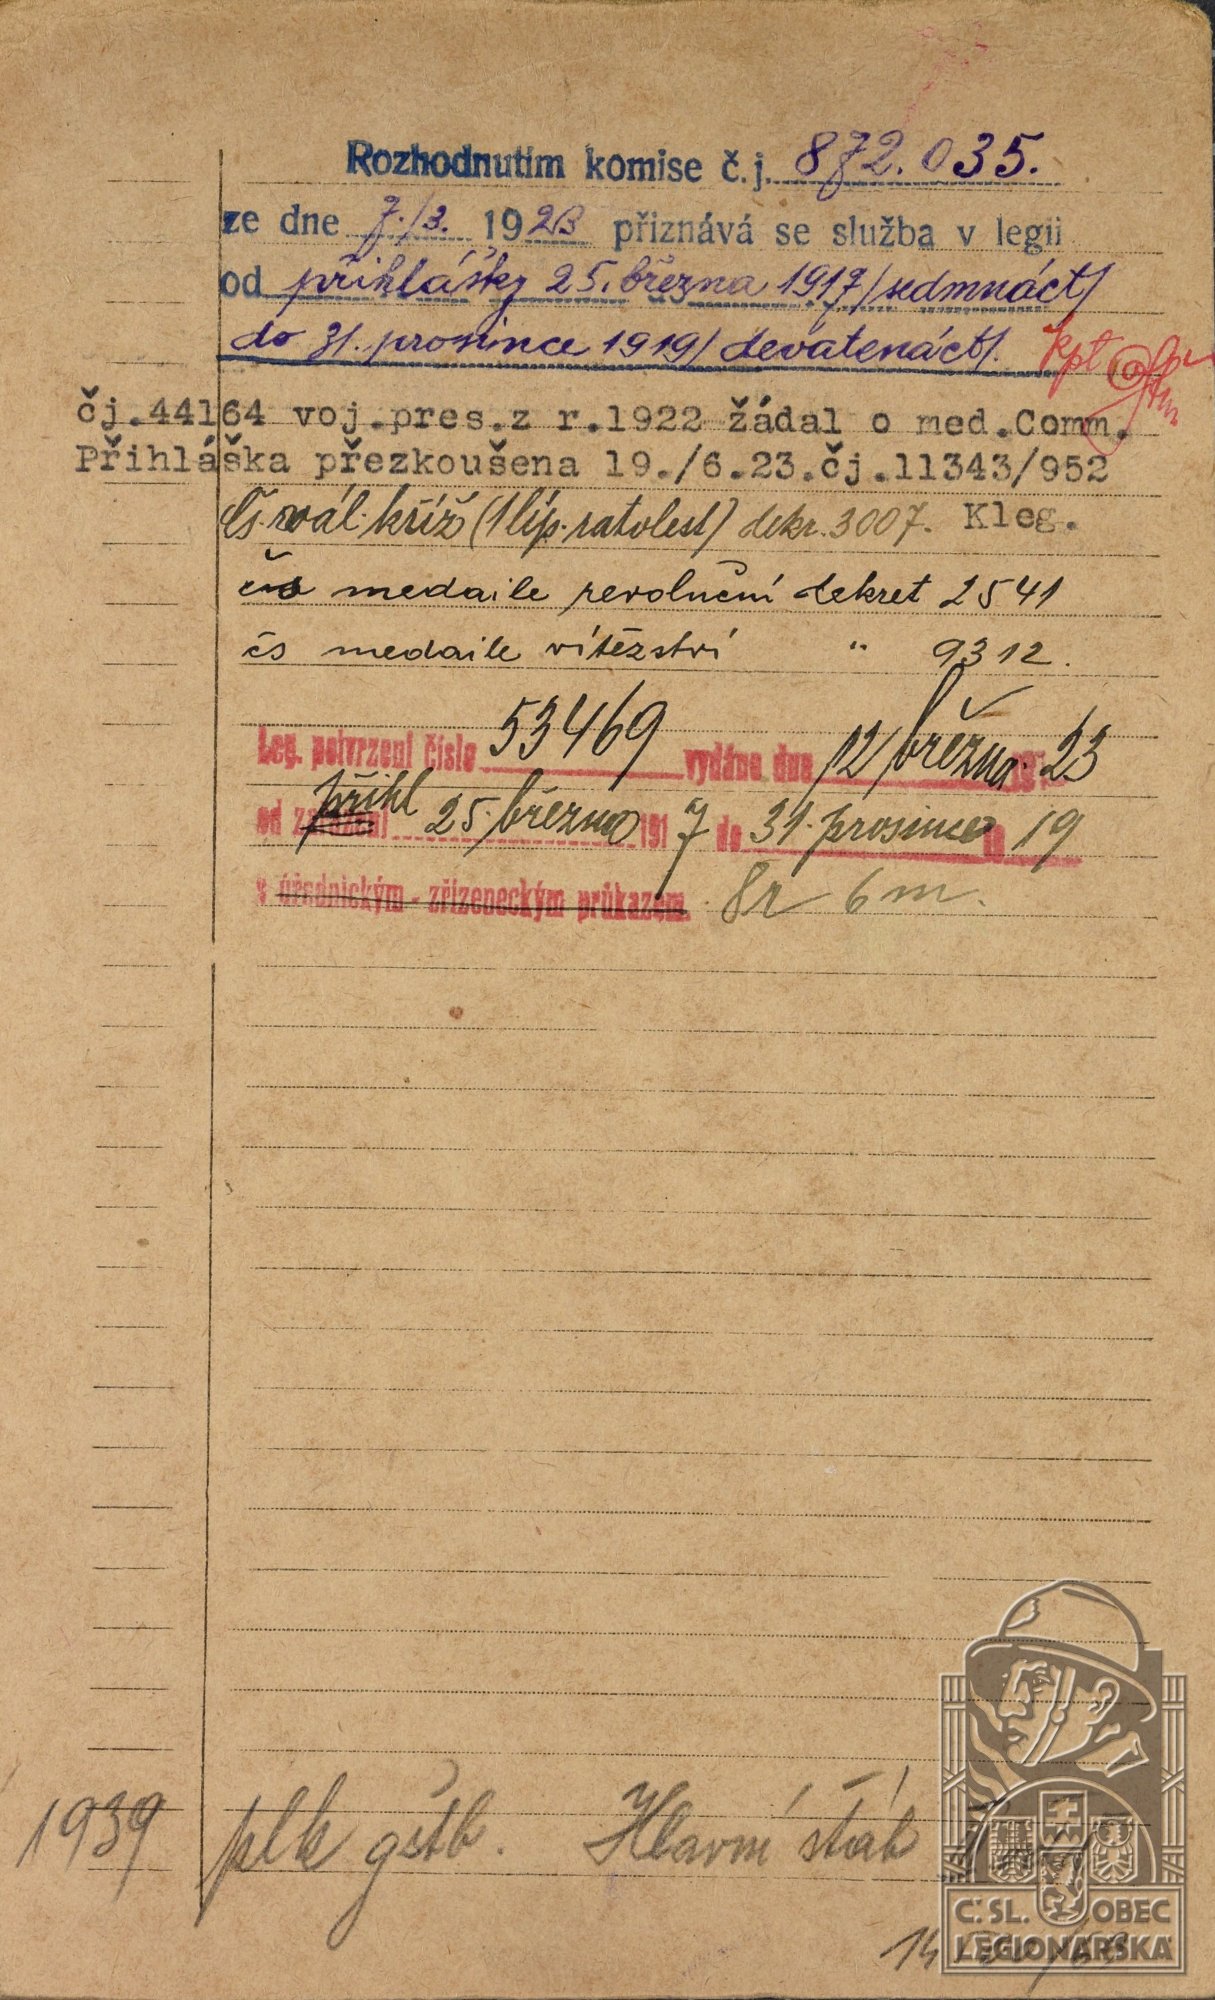 Rozhodnutím komise č.j. 872.035.
ze dne 7./3. 1923 přiznává se služba v legii
od přihlášky 25. března 1917/sedmnáct/
do 31. prosince 1919/devatenáct/. kpt
čj.44164 voj.pres.z r.1922 žádal o med.Comm.
Přihláška přezkoušena 19./6.23.čj.11343/952
Čs. vál. kříž (1 líp. ratolest) dekr. 3007. Kleg.
čs medaile revoluční dekret 2541
čs medaile vítězství " 9312.
Leg. potvrzení číslo 53469 vydáno dne 12/března 23
přihl
od zařazení 25. března 1917 do 31. prosince 19
s úřednickým - zřízeneckým průkazem. 8r 6m.
1939 plk gštb. Hlavní štáb
Č. SL. OBEC
LEGIONÁŘSKÁ
14